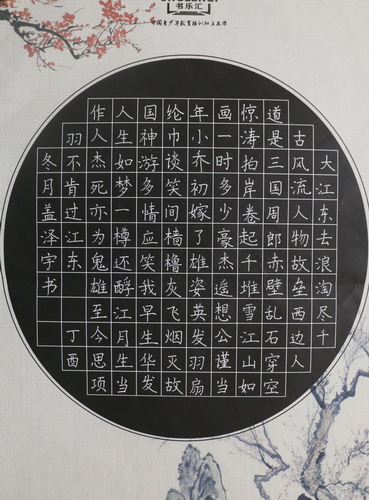 书乐汇
大江东去浪淘尽千
古风流人物故垒西边人
道是三国周郎赤壁乱石穿空
惊涛拍岸卷起千堆雪江山如
画一时多少豪杰遥想公谨当
年小乔初嫁了雄姿英发羽扇
纶巾谈笑间樯橹灰飞烟灭故
国神游多情应笑我早生华发
人生如梦一樽还酹江月生当
作人杰死亦为鬼雄至今思项
羽不肯过江东
丁酉
冬月盖泽宇书